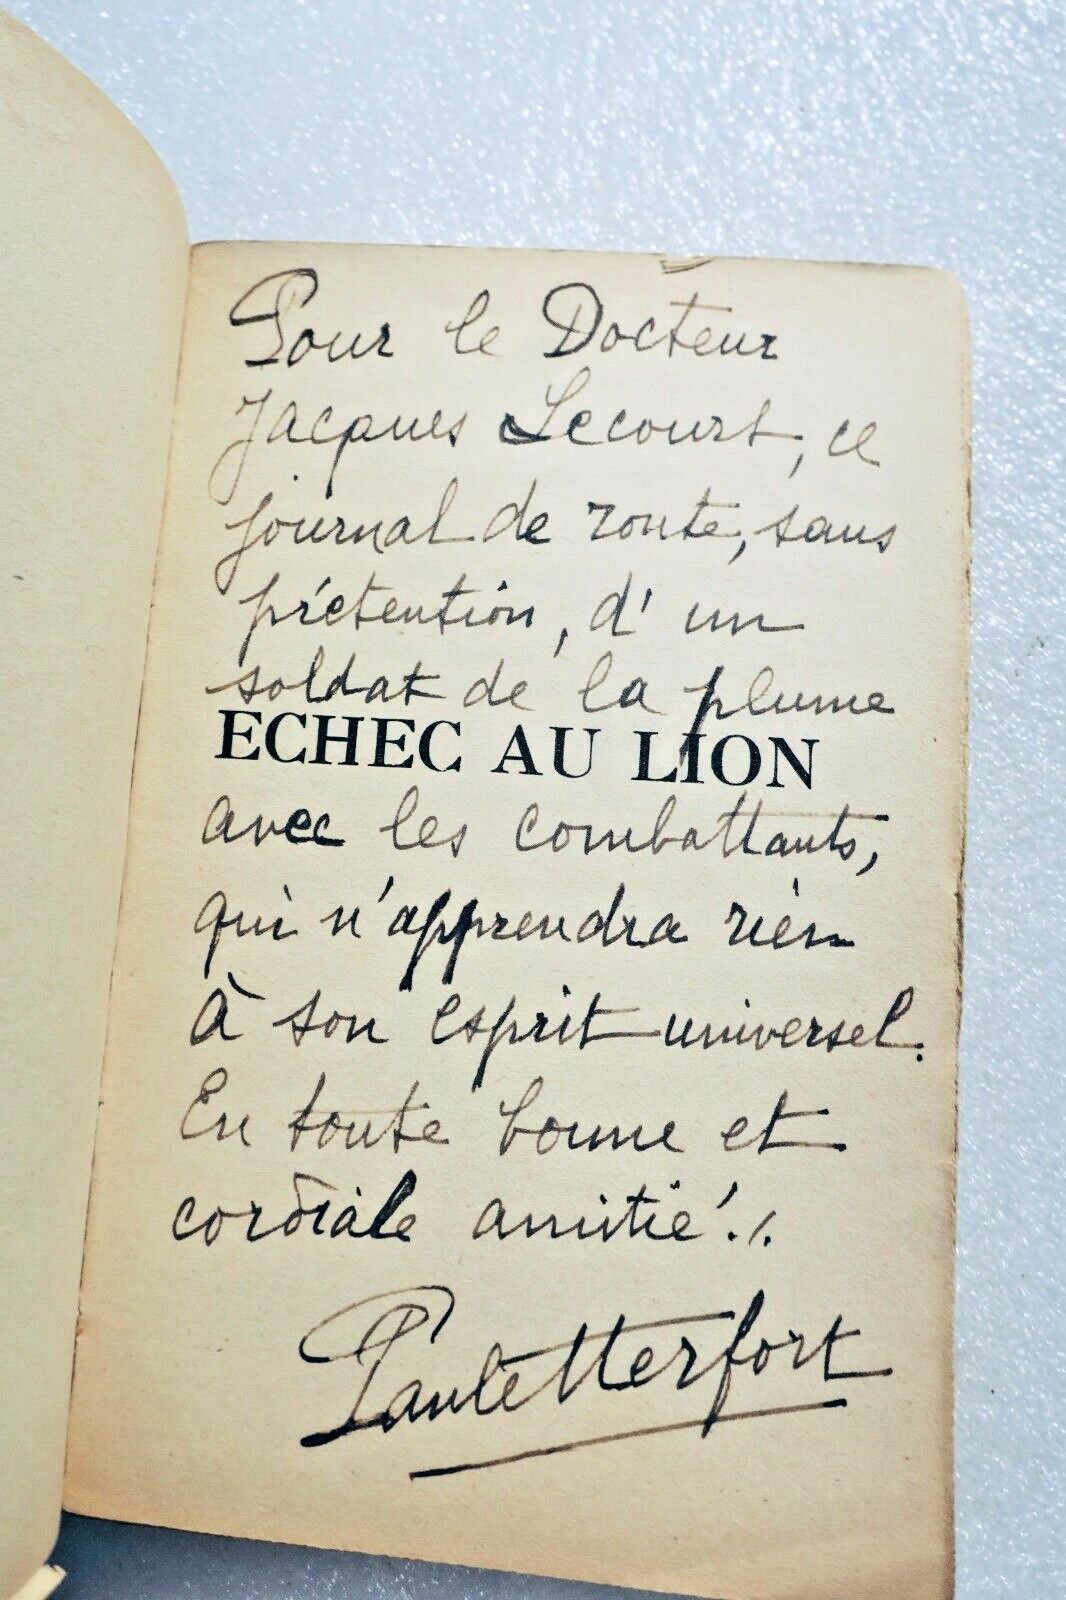 Pour le Docteur
Jacques Lecourt, ce
journal de route, sans
prétention, d'un
soldat de la plume
ECHEC AU LION
avec les combattants,
qui n'apprendra rien
à son esprit universel.
En toute bonne et
cordiale amitié !.